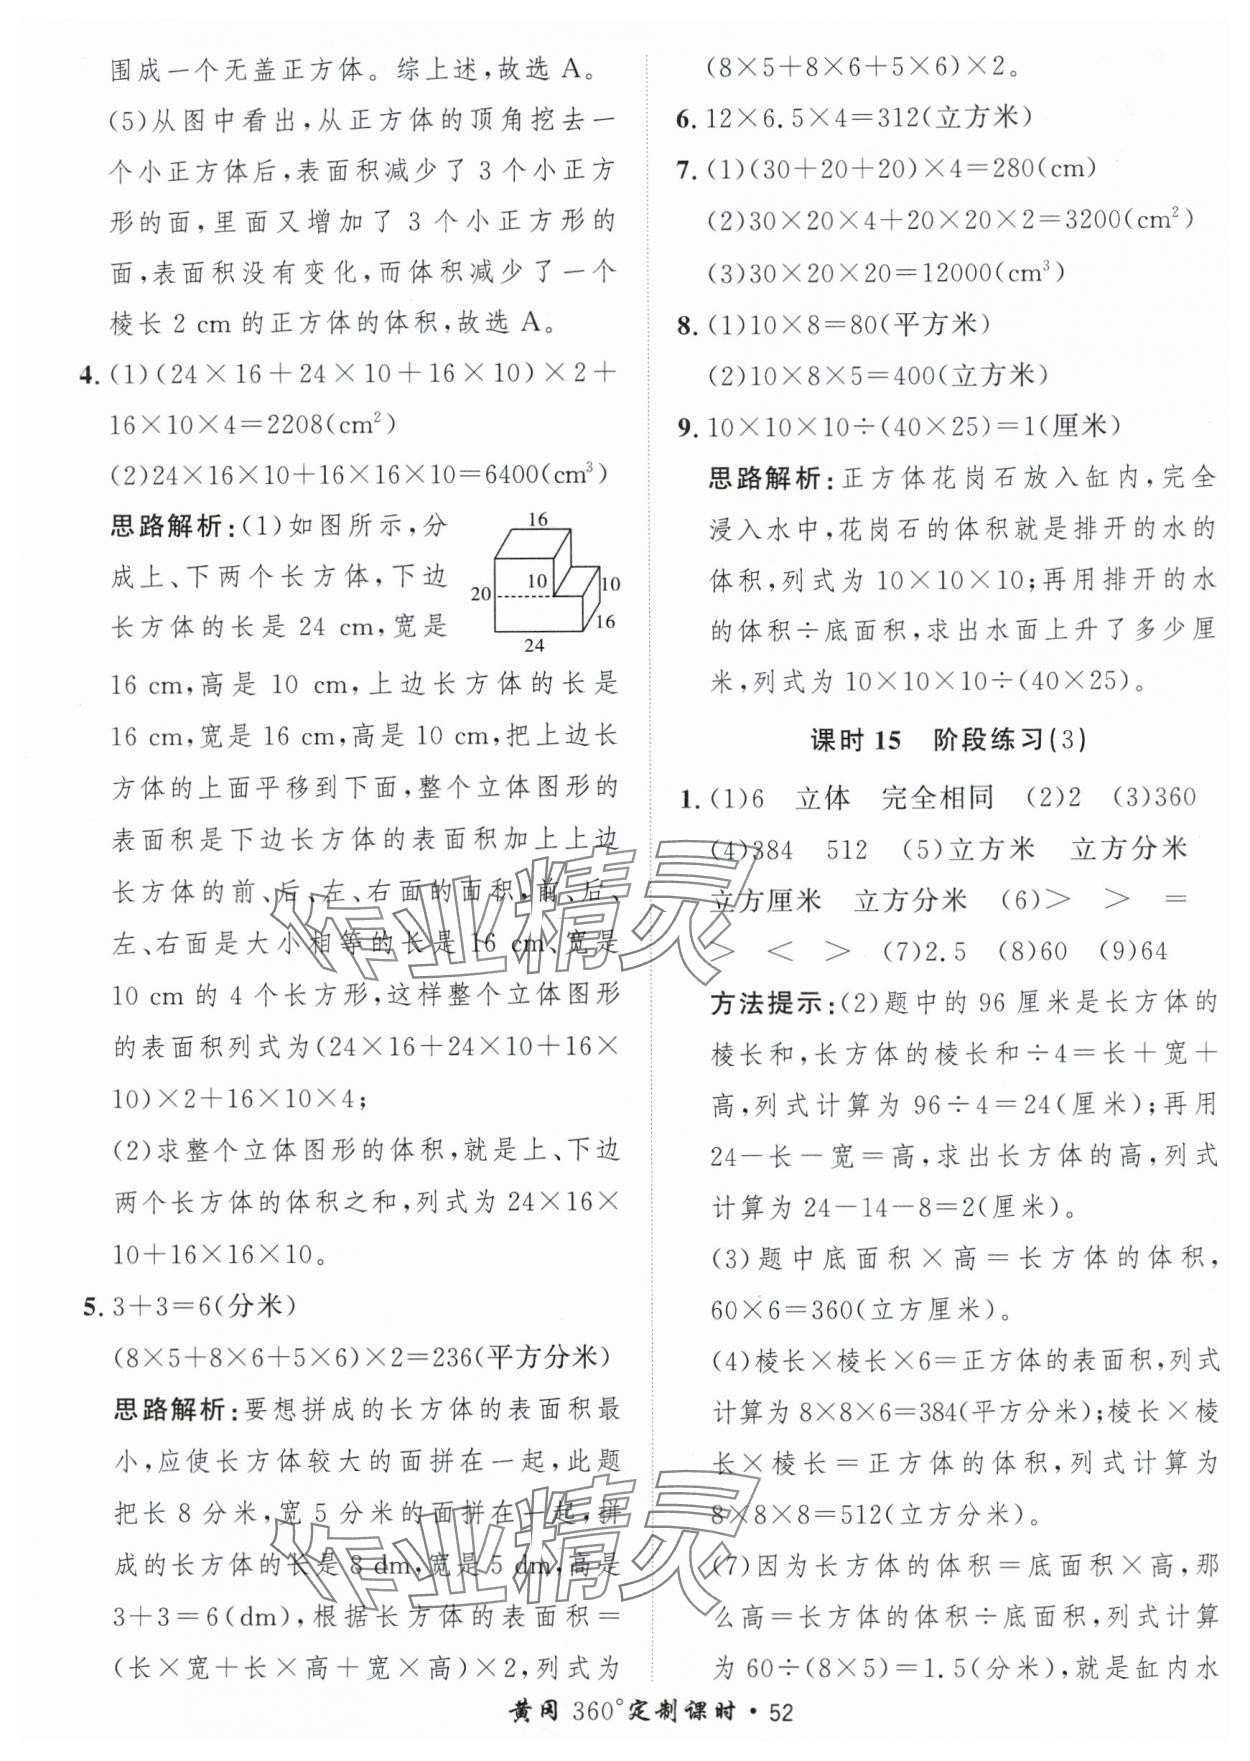 围成一个无盖正方体。综上述,故选 A。
(5)从图中看出,从正方体的顶角挖去一
个小正方体后,表面积减少了 3 个小正方
形的面,里面又增加了 3 个小正方形的
面,表面积没有变化,而体积减少了一个
棱长 2 cm 的正方体的体积,故选 A。
4. (1)(24×16+24×10+16×10)×2+
16×10×4=2208(cm²)
(2)24×16×10+16×16×10=6400(cm³)
思路解析:(1)如图所示,分
成上、下两个长方体,下边
长方体的长是 24 cm,宽是
16
10
10
20
16
24
16 cm,高是 10 cm,上边长方体的长是
16 cm,宽是 16 cm,高是 10 cm,把上边长
方体的上面平移到下面,整个立体图形的
表面积是下边长方体的表面积加上上边
长方体的前、后、左、右面的面积,前、后、
左、右面是大小相等的长是 16 cm、宽是
10 cm 的 4 个长方形,这样整个立体图形
的表面积列式为(24×16+24×10+16×
10)×2+16×10×4;
(2)求整个立体图形的体积,就是上、下边
两个长方体的体积之和,列式为 24×16×
10+16×16×10。
5. 3+3=6(分米)
(8×5+8×6+5×6)×2=236(平方分米)
思路解析:要想拼成的长方体的表面积最
小,应使长方体较大的面拼在一起,此题
把长 8 分米,宽 5 分米的面拼在一起,拼
成的长方体的长是 8 dm,宽是 5 dm,高是
3+3=6(dm),根据长方体的表面积=
(长×宽+长×高+宽×高)×2,列式为
(8×5+8×6+5×6)×2。
6. 12×6.5×4=312(立方米)
7. (1)(30+20+20)×4=280(cm)
(2)30×20×4+20×20×2=3200(cm²)
(3)30×20×20=12000(cm³)
8. (1)10×8=80(平方米)
(2)10×8×5=400(立方米)
9. 10×10×10÷(40×25)=1(厘米)
思路解析:正方体花岗石放入缸内,完全
浸入水中,花岗石的体积就是排开的水的
体积,列式为 10×10×10;再用排开的水
的体积÷底面积,求出水面上升了多少厘
米,列式为 10×10×10÷(40×25)。
课时 15 阶段练习(3)
1. (1)6 立体 完全相同 (2)2 (3)360
(4)384 512 (5)立方米 立方分米
立方厘米 立方分米 (6)> > =
> < > (7)2.5 (8)60 (9)64
方法提示:(2)题中的 96 厘米是长方体的
棱长和,长方体的棱长和÷4=长+宽+
高,列式计算为 96÷4=24(厘米);再用
24-长-宽=高,求出长方体的高,列式
计算为 24-14-8=2(厘米)。
(3)题中底面积×高=长方体的体积,
60×6=360(立方厘米)。
(4)棱长×棱长×6=正方体的表面积,列式
计算为 8×8×6=384(平方分米);棱长×棱
长×棱长=正方体的体积,列式计算为
8×8×8=512(立方分米)。
(7)因为长方体的体积=底面积×高,那
么高=长方体的体积÷底面积,列式计算
为 60÷(8×5)=1.5(分米),就是缸内水
黄冈 360°定制课时·52
作业精灵
作业精灵